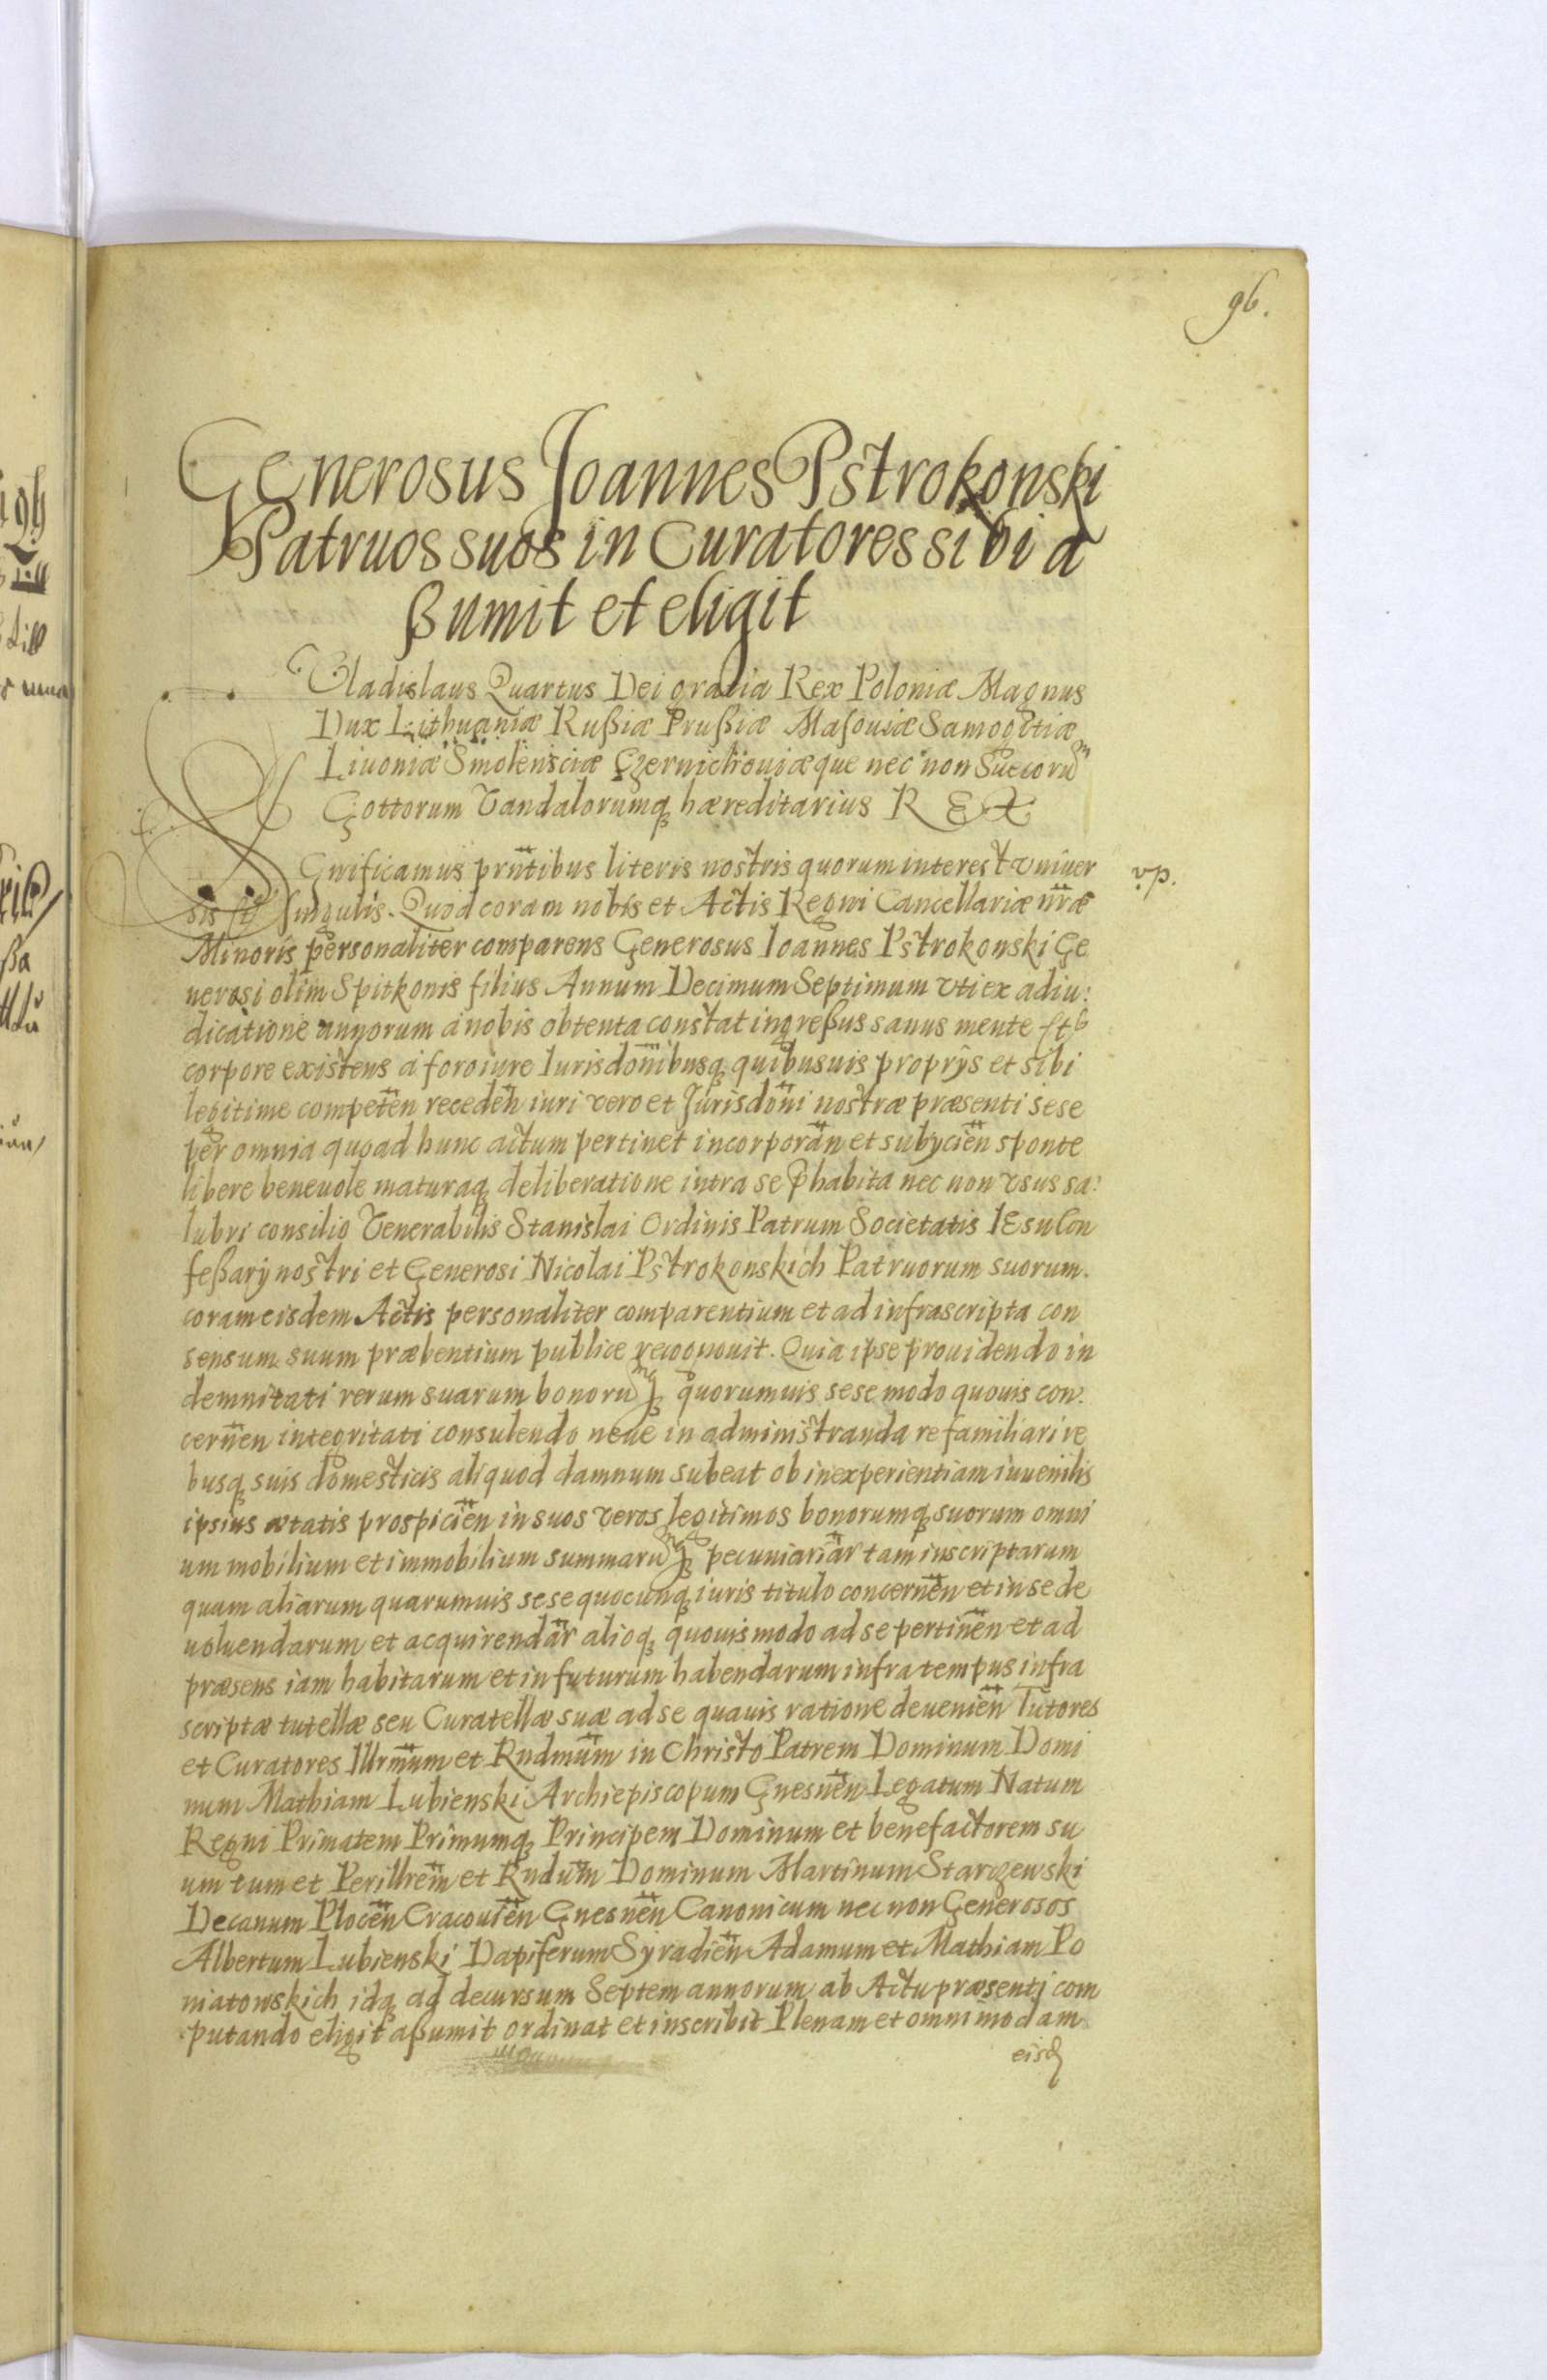 96.
Generosus Joannes Pstrokonski
Patruos suos in Curatores sibi a
ßumit et eligit
Vladislaus Quartus Dei gratia Rex Poloniæ Magnus
Dux Lithuaniæ Rußiæ Prußiæ Masouiæ Samogitiæ
Liuoniæ Smolensciæ Czernichouiæque nec non Suecorũ
Gottorum Vandalorumq hæreditarius REX
Significamus prñtibus literis nostris quorum interest vniuer
sis et singulis. Quod coram nobis et Actis Regni Cancellariæ nr̃æ
Minoris personaliter comparens Generosus Ioannes Pstrokonski Ge
nerosi olim Spitkonis filius Annum Decimum Septimum vti ex adiu:
dicatione annorum à nobis obtenta constat ingreßus sanus mente et
corpore existens à foro iure Iurisdonibusq quibusuis proprijs et sibi
legitime competeñ recedeñ iuri vero et Jurisdoñi nostræ præsenti sese
per omnia quoad hunc actum pertinet incorporañ et subycieñ sponte
libere beneuole maturaq deliberatione intra se p̃habita nec non vsus sa:
lubri consilio Venerabilis Stanislai Ordinis Patrum Societatis IEsu Con
feßarij nostri et Generosi Nicolai Pstrokonskich Patruorum suorum.
coram eisdem Actis personaliter comparentium et ad infrascripta con
sensum suum præbentium publice recognouit. Quia ipse prouidendo in
demnitati rerum suarum bonorũq quorumuis sese modo quouis con.
cerneñ integritati consulendo neue in administranda re familiari re
busq suis domesticis aliquod damnum subeat ob inexperientiam iuuenilis
ipsius ætatis prospicieñ in suos veros legitimos bonorumq suorum omni
um mobilium et immobilium summarũq pecuniariar̃ tam inscriptarum
quam aliarum quarumuis sese quocunq iuris titulo concerneñ et in se de
uoluendarum et acquirendar̃ alioq quouis modo ad se pertineñ et ad
præsens iam habitarum et in futurum habendarum infra tempus infra
scriptæ tutellæ seu Curatellæ suæ ad se quauis ratione deuenieñ Tutores
et Curatores Illrm̃um et Rndm̃um in Christo Patrem Dominum Domi
num Mathiam Lubienski Archiepiscopum Gnesneñ Legatum Natum
Regni Primatem Primumq Principem Dominum et benefactorem su
um tum et Perillrem̃ et Rndum̃ Dominum Martinum Starczewski
Decanum Ploceñ Cracouieñ Gnesneñ Canonicum nec non Generosos
Albertum Lubienski Dapiferum Syradieñ Adamum et Mathiam Po
niatowskich idq ad decursum Septem annorum ab Actu præsenti com
putando eligit aßumit ordinat et inscribit Plenam et omnimodam
eisd